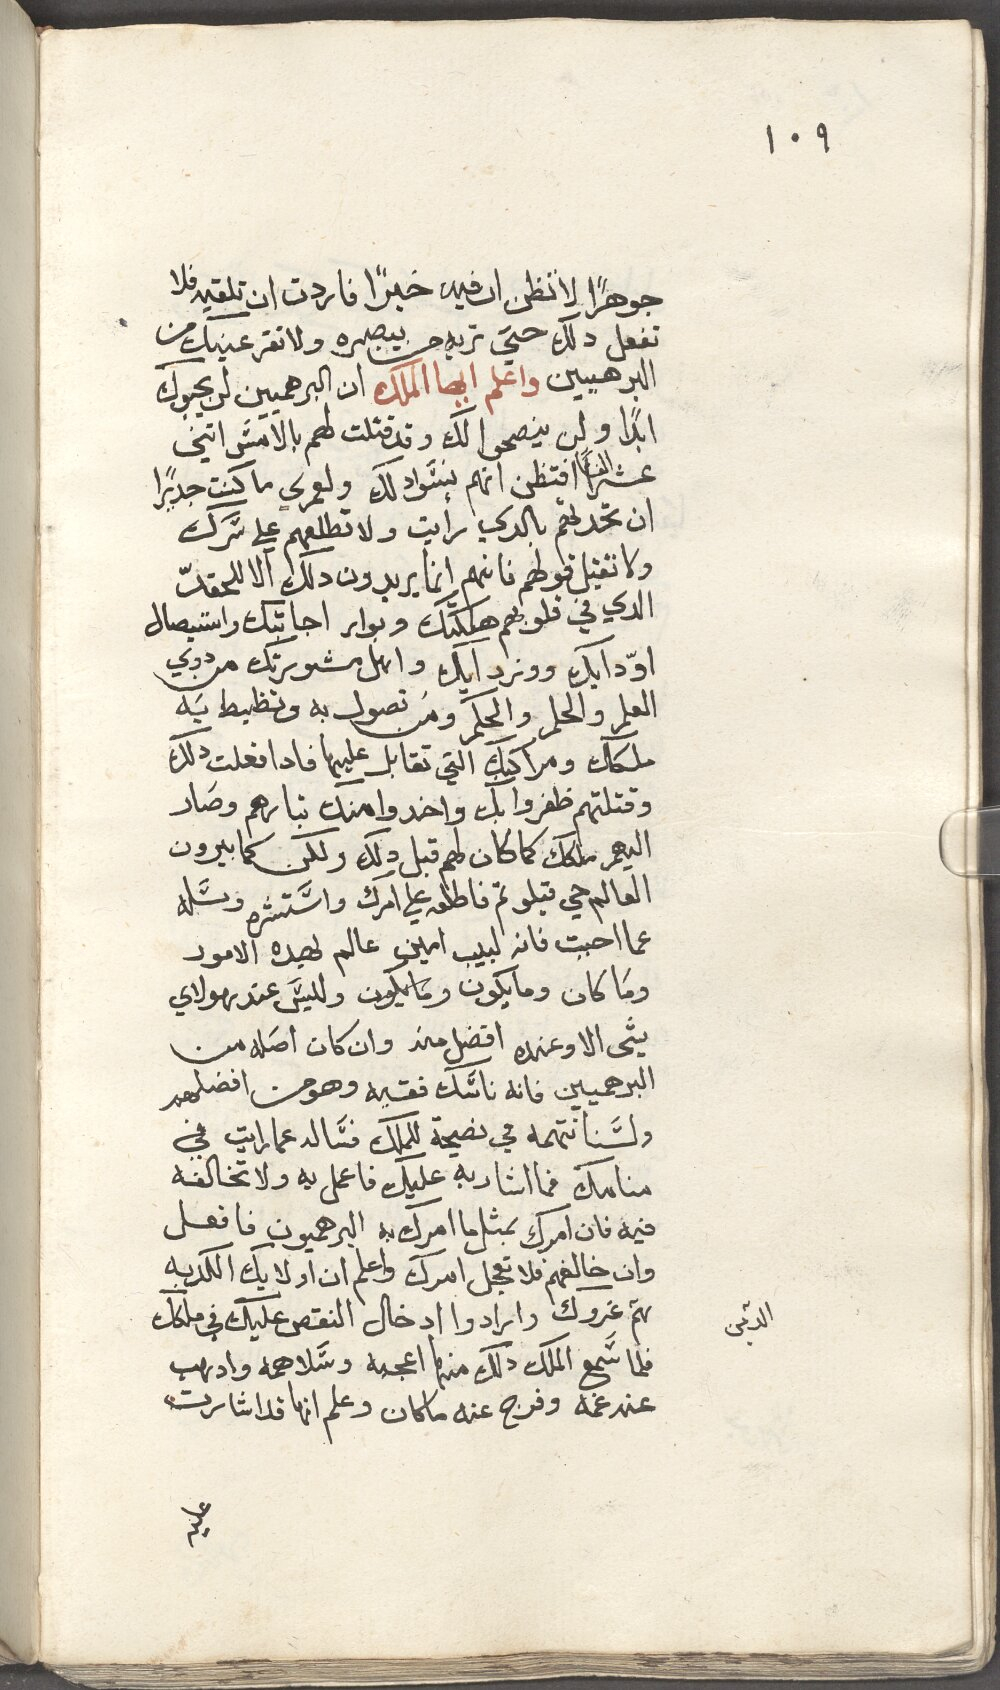 ١٠٩
جوهرًا لا تظن ان فيه خيرًا فاردت ان تلقيه فلا
تفعل دلك حتي تريه من يبصره ولا تقر عينيك من
البرهميين واعلم ايها الملك ان البرهميين لن يحبوك
ابدًا ولن ينصحوا لك وقد قتلت لهم بالامس اتني
عشر الفًا افتظن انهم ينسَوا دلك ولعمري ما كنت جديرًا
ان تخدلهم بالدي رايت ولا تطلعهم علي سَرك
ولا تقبل قولهم فانهم انما يريدون دلك الا للحقد
الدي في قلوبهم هلكتك وبوار احابتك واستيصال
اودايك ووزرايك واهل مشورتك من دوي
العلم والحلم والحكم ومن تصول به وتظبط به
ملكك ومراكبك التي تقابل عليها فادا فعلت دلك
وقتلتهم ظفروا بك واخدوا منك بتارهم وصَار
اليهم ملكك كما كان لهم قبل دلك ولكن كما بيرون
العالم حي قبلوتم فاطلعه علي امرك واسَتشره وسَله
عما احببت فانه لبيب امين عالم لهده الامور
ومَا كان وما يكون وما يكون ولليسَ عند هولاي
شَي الا وعنده افضل منه وان كان اصَله من
البرهميين فانه ناسَك فقيه وهو من افضلهم
ولسَنا نتهمه في نصيحة للملك فسَاله عما رايت في
منامك فما اشار به عليك فاعمل به ولا تخالفه
فيه فان امرك بمثل ما امرك به البرهميون فافعل
وان خالفهم فلا تعجل امرك واعلم ان اولايك الكدبه
بهم غروك وارادوا ادخال النقص عليك في ملكك
الدين
فلما سَمع الملك دلك منها اعجبه وسَلا همه وادهب
عنه غمه وفرج عنه ما كان وعلم انها قد اشارت
عليه